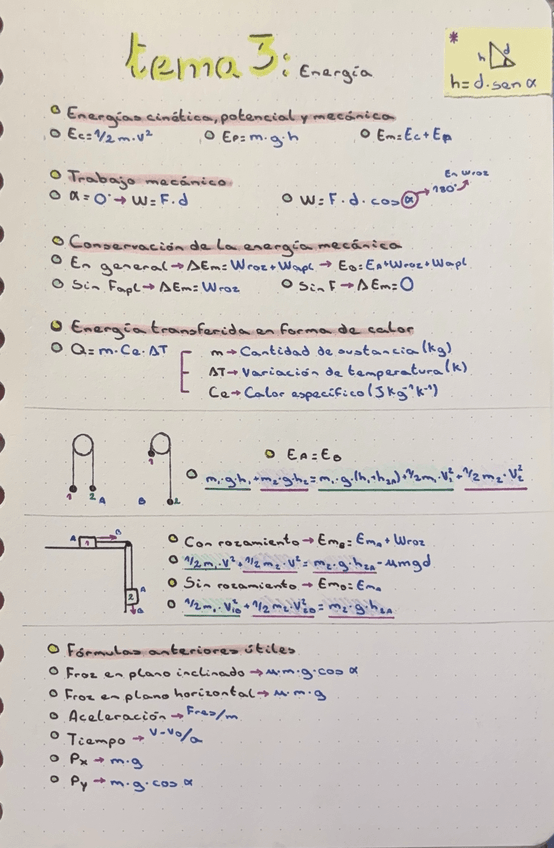 tema 3: Energía
*
h d
h = d · sen α
Energías cinética, potencial y mecánica
Ec = 1/2 m · v²
Ep = m · g · h
Em = Ec + Ep
Trabajo mecánico
α = 0° → W = F · d
W = F · d · cos α → 180°
En Wroz
Conservación de la energía mecánica
En general → ΔEm = Wroz + Wapl → EB = EA + Wroz + Wapl
Sin Fapl → ΔEm = Wroz
Sin F → ΔEm = 0
Energía transferida en forma de calor
Q = m · Ce · ΔT
m → Cantidad de sustancia (kg)
ΔT → Variación de temperatura (k)
Ce → Calor específico (J kg⁻¹ k⁻¹)
1 2 A
1 B 2
EA = EB
m₁ · g · h₁ + m₂ · g · h₂ = m₁ · g · (h₁ + h₂A) + 1/2 m₁ · V₁² + 1/2 m₂ · V₂²
A 1 B
2 A
B
Con rozamiento → EmB = EmA + Wroz
1/2 m₁ · V² + 1/2 m₂ · V² = m₂ · g · h₂A - μmgd
Sin rozamiento → EmB = EmA
1/2 m₁ · V₁B² + 1/2 m₂ · V₂B² = m₂ · g · h₂A
Fórmulas anteriores útiles
Froz en plano inclinado → μ · m · g · cos α
Froz en plano horizontal → μ · m · g
Aceleración → Fres/m
Tiempo → V-V₀/a
Px → m · g
Py → m · g · cos α